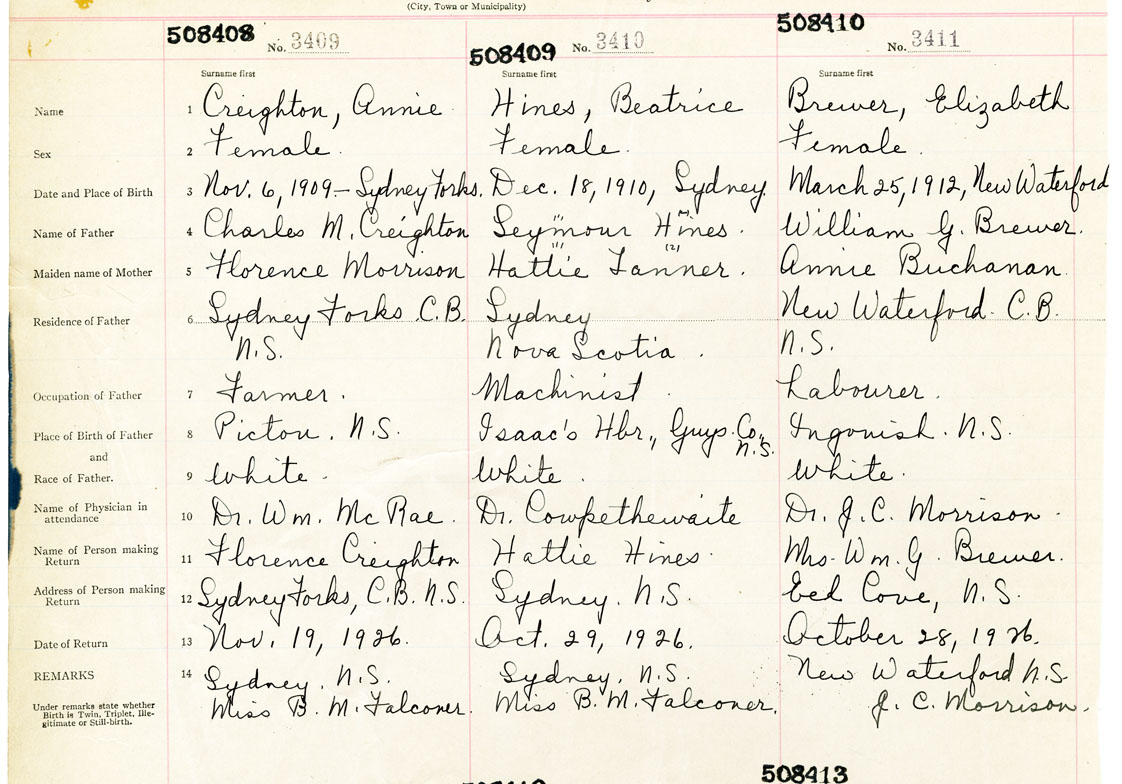 (City, Town or Municipality)
508408 No. 3409 508409 No. 3410 508410 No. 3411
Surname first Surname first Surname first
Name 1 Creighton, Annie Hines, Beatrice Brewer, Elizabeth
Sex 2 Female. Female. Female.
Date and Place of Birth 3 Nov. 6, 1909 - Sydney Forks. Dec. 18, 1910, Sydney. March 25, 1912, New Waterford
Name of Father 4 Charles M. Creighton Seymour Hines. William G. Brewer.
Maiden name of Mother 5 Florence Morrison Hattie Tanner. Annie Buchanan.
Residence of Father 6 Sydney Forks C.B. Sydney New Waterford. C.B.
N.S. Nova Scotia. N.S.
Occupation of Father 7 Farmer. Machinist. Labourer.
Place of Birth of Father 8 Pictou. N.S. Isaac's Hbr., Guys. Co., Ingonish. N.S.
N.S.
and
Race of Father. 9 White. White. White.
Name of Physician in attendance 10 Dr. Wm. McRae. Dr. Cowpethewaite Dr. J.C. Morrison.
Name of Person making Return 11 Florence Creighton Hattie Hines. Mrs. Wm. G. Brewer.
Address of Person making Return 12 Sydney Forks, C.B. N.S. Sydney. N.S. Eel Cove, N.S.
Date of Return 13 Nov. 19, 1926. Oct. 29, 1926. October 28, 1926.
REMARKS 14 Sydney. N.S. Sydney. N.S. New Waterford N.S.
Under remarks state whether Birth is Twin, Triplet, Ille-gitimate or Still-birth. Miss B. M. Falconer. Miss B. M. Falconer. J. C. Morrison.
508413